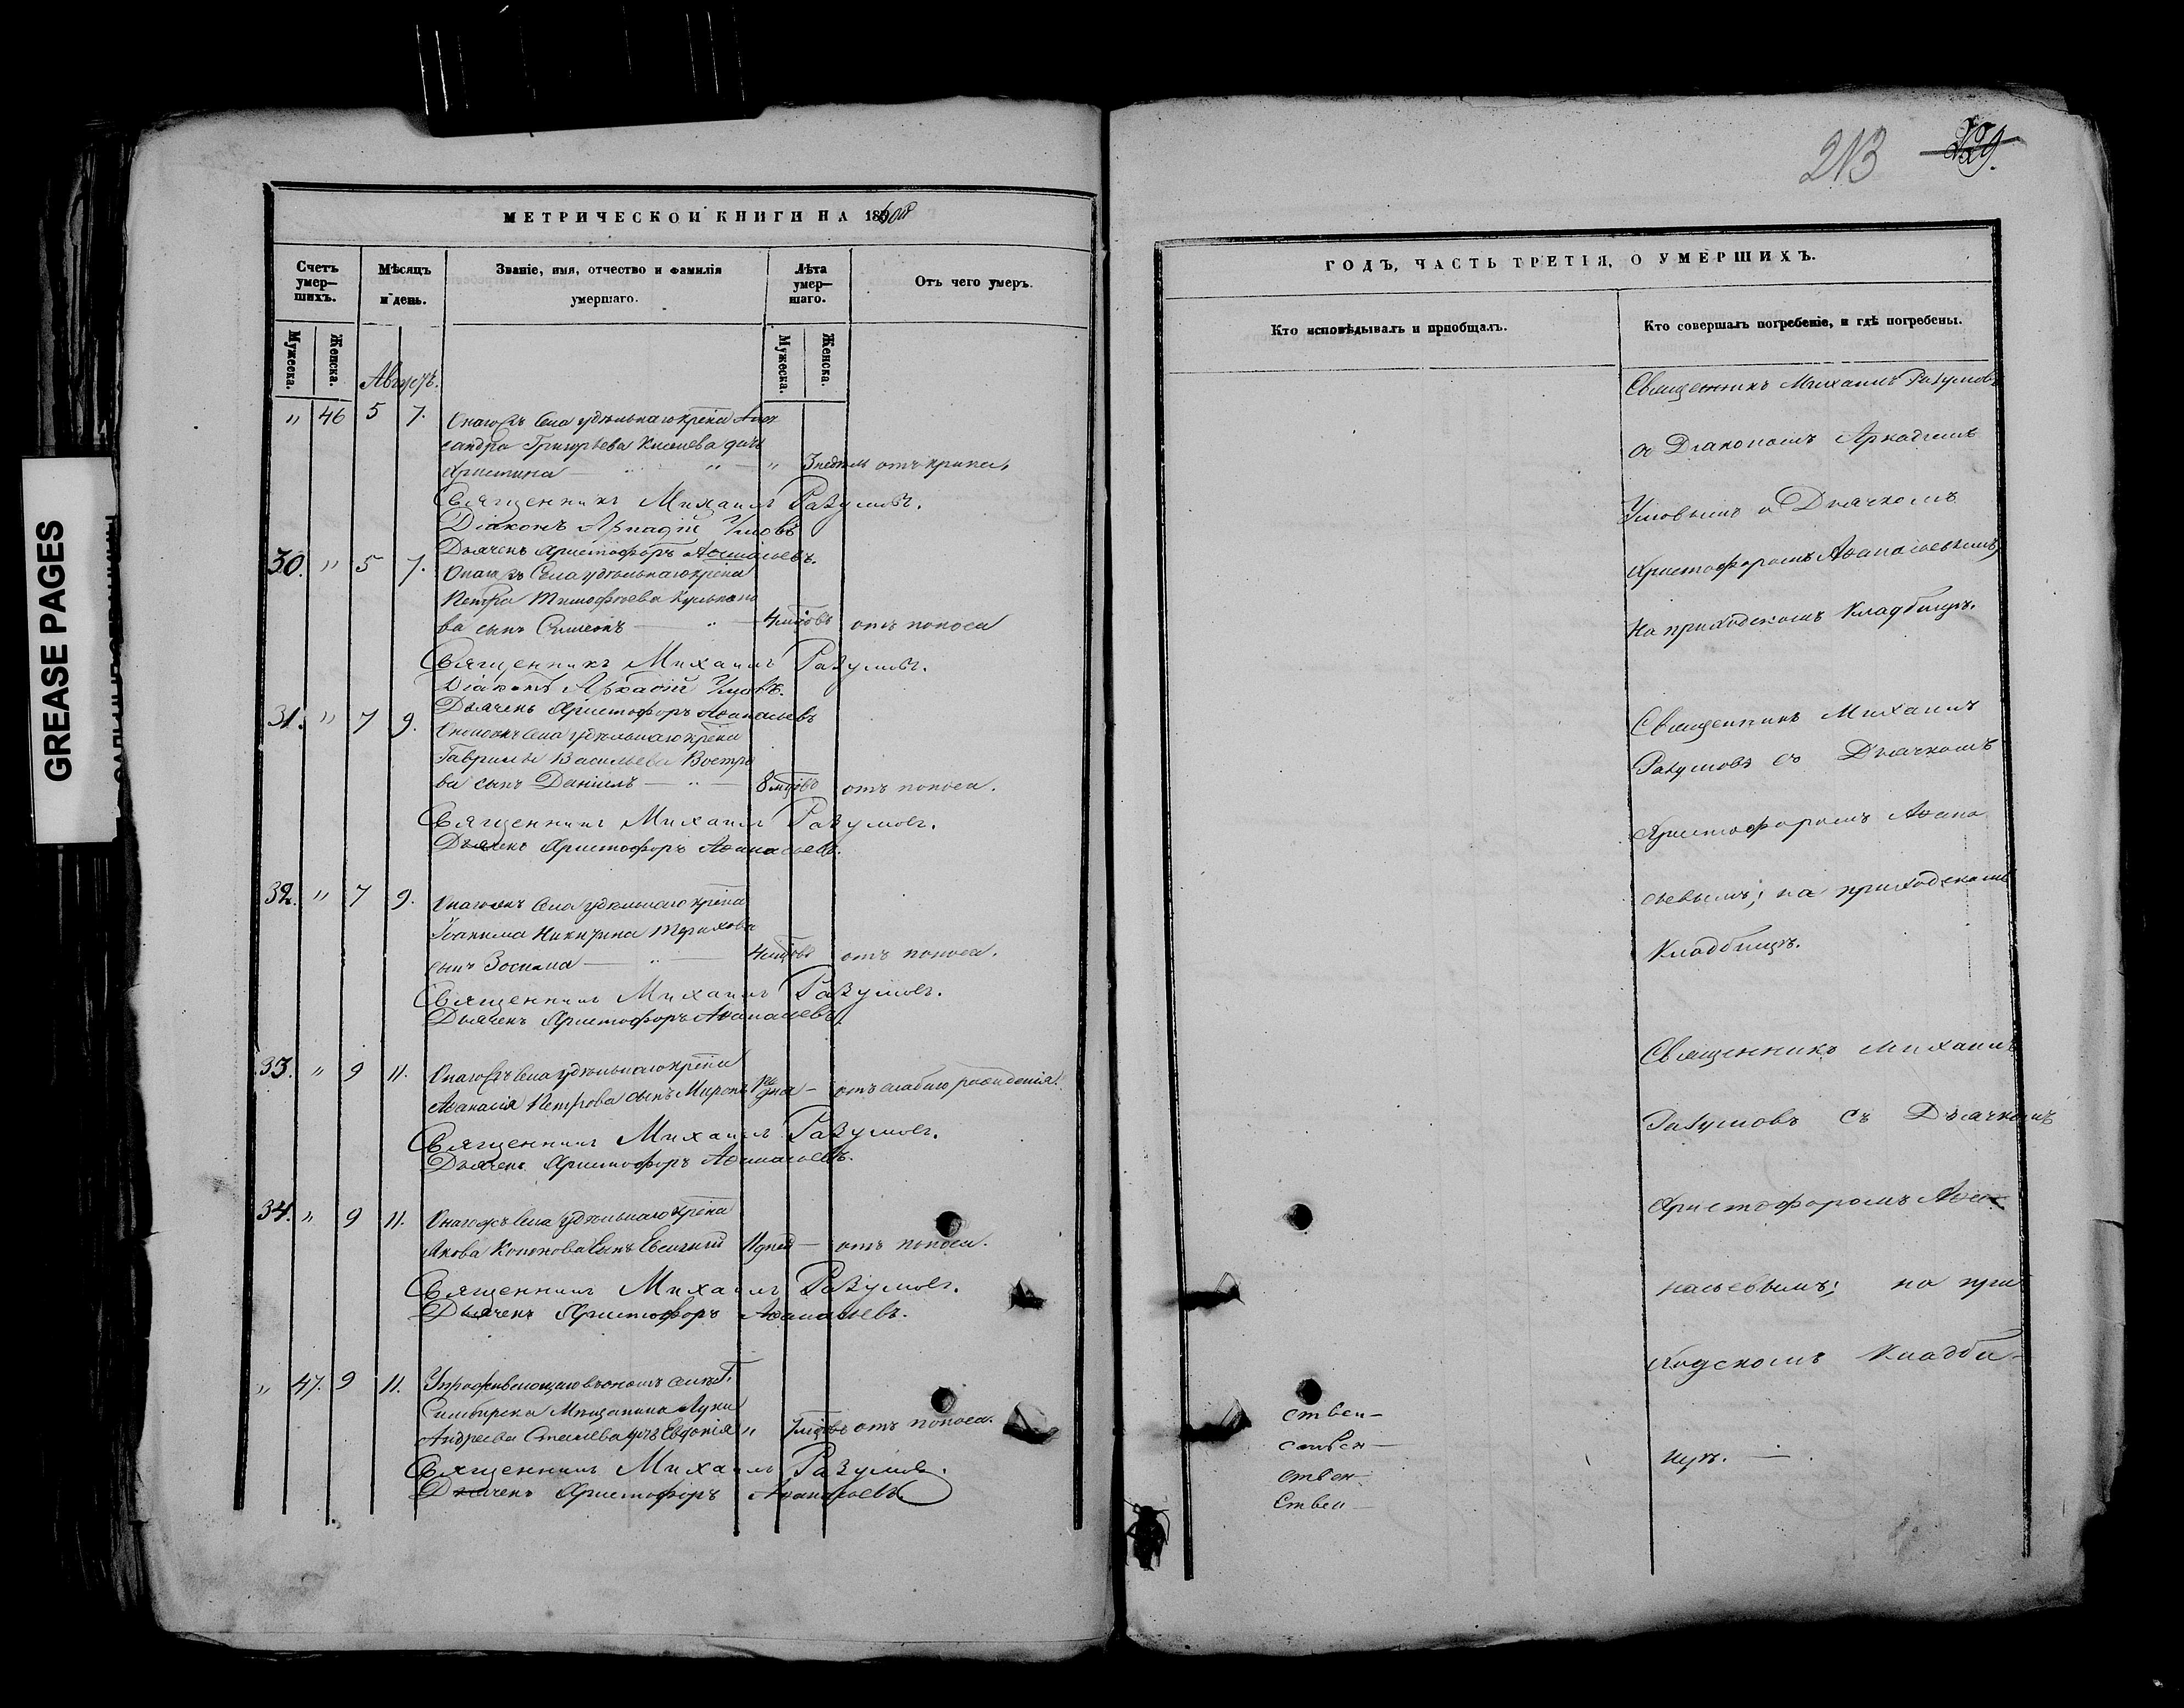 GREASE PAGES
213
229.
МЕТРИЧЕСКОЙ КНИГИ НА 1860й
Счетъ умер—шихъ.
Мѣсяцъ и день.
Званіе, имя, отчество и фамилія умершаго.
Лѣта умер—шаго.
Отъ чего умеръ.
Мужеска.
Женска.
Мужеска.
Женска.
Августъ.
" 46 5 7. Онагожъ села удѣльнаго крѣна Алек
сандра Григорьева дочь
Христина — " — " 3 недѣль отъ крика.
Священникъ Михаилъ Разумовъ.
Діаконъ Аркадій Умовъ
Дьячекъ Христофоръ Аѳанасьевъ.
30. " 5 7. Онагожъ села удѣльнаго крѣна
Петра Тимофѣева
ва сынъ Симеонъ — " — 4 мцовъ отъ поноса
Священникъ Михаилъ Разумовъ.
Діаконъ Аркадій Умовъ.
Дьячекъ Христофоръ Аѳанасьевъ
31. " 7 9. села удѣльнаго крѣна
Гаврилы Васильева Востро
ва сынъ Даніилъ — " — 8 мцовъ отъ поноса.
Священникъ Михаилъ Разумовъ.
Дьячекъ Христофоръ Аѳанасьевъ.
32. " 7 9. Онагожъ села удѣльнаго крѣна
Іоакима Никитина
сынъ Зосима — " — 4 мцовъ отъ поноса.
Священникъ Михаилъ Разумовъ.
Дьячекъ Христофоръ Аѳанасьевъ.
33. " 9 11. Онагожъ села удѣльнаго крѣна
Аѳанасія Петрова сынъ Миронъ дня — отъ слабаго рожденія.
Священникъ Михаилъ Разумовъ.
Дьячекъ Христофоръ Аѳанасьевъ.
34. " 9 11. Онагожъ села удѣльнаго крѣна
Якова Кононова сынъ Евсигній 11 дней — отъ поноса.
Священникъ Михаилъ Разумовъ.
Дьячекъ Христофоръ Аѳанасьевъ.
" 47. 9 11. въ ономъ селѣ Г.
Симбирска Мѣщанина Луки
Андреева дочь Евдокія " 7 мцовъ отъ поноса.
Священникъ Михаилъ Разумовъ.
Дьячекъ Христофоръ Аѳанасьевъ.
ГОДЪ, ЧАСТЬ ТРЕТІЯ, О УМЕРШИХЪ.
Кто исповѣдывалъ и пріобщалъ.
Кто совершалъ погребеніе, и гдѣ погребены.
Священникъ Михаилъ Разумовъ
съ Діакономъ Аркадіемъ
Умовымъ и Дьячкомъ
Христофоромъ Аѳанасьевымъ,
на приходскомъ Кладбищѣ.
Священникъ Михаилъ
Разумовъ съ Дьячкомъ
Христофоромъ Аѳана
сьевымъ; на приходскомъ
Кладбищѣ.
Священникъ Михаилъ
Разумовъ съ Дьячкомъ
Христофоромъ Аѳа-
насьевымъ; на при
ходскомъ Кладби-
щѣ. —
ствен—
ствен—
ствен—
ствен—